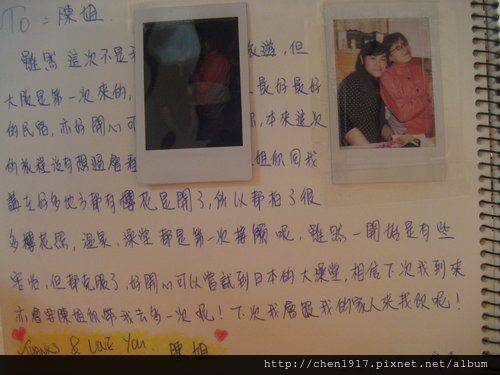 To = 陳姐
雖然 這次不是 旅遊，但
大阪是第一次來的， 最好最好
的民宿，亦好開心可 ，本來這次
的旅程沒有 姐你同我
講在好多地方都有櫻花是開了，所以都拍了很
多櫻花照，溫泉，澡堂都是第一次接觸呢，雖然一開始是有些
害怕，但都克服了，好開心可以嘗試到日本的大澡堂，相信下次我到來
亦會帶陳姐你帶我去多一次呢！下次我會跟我的家人來找你呢！
Thanks & Love You... 陳姐
http://chen1917.pixnet.net/album